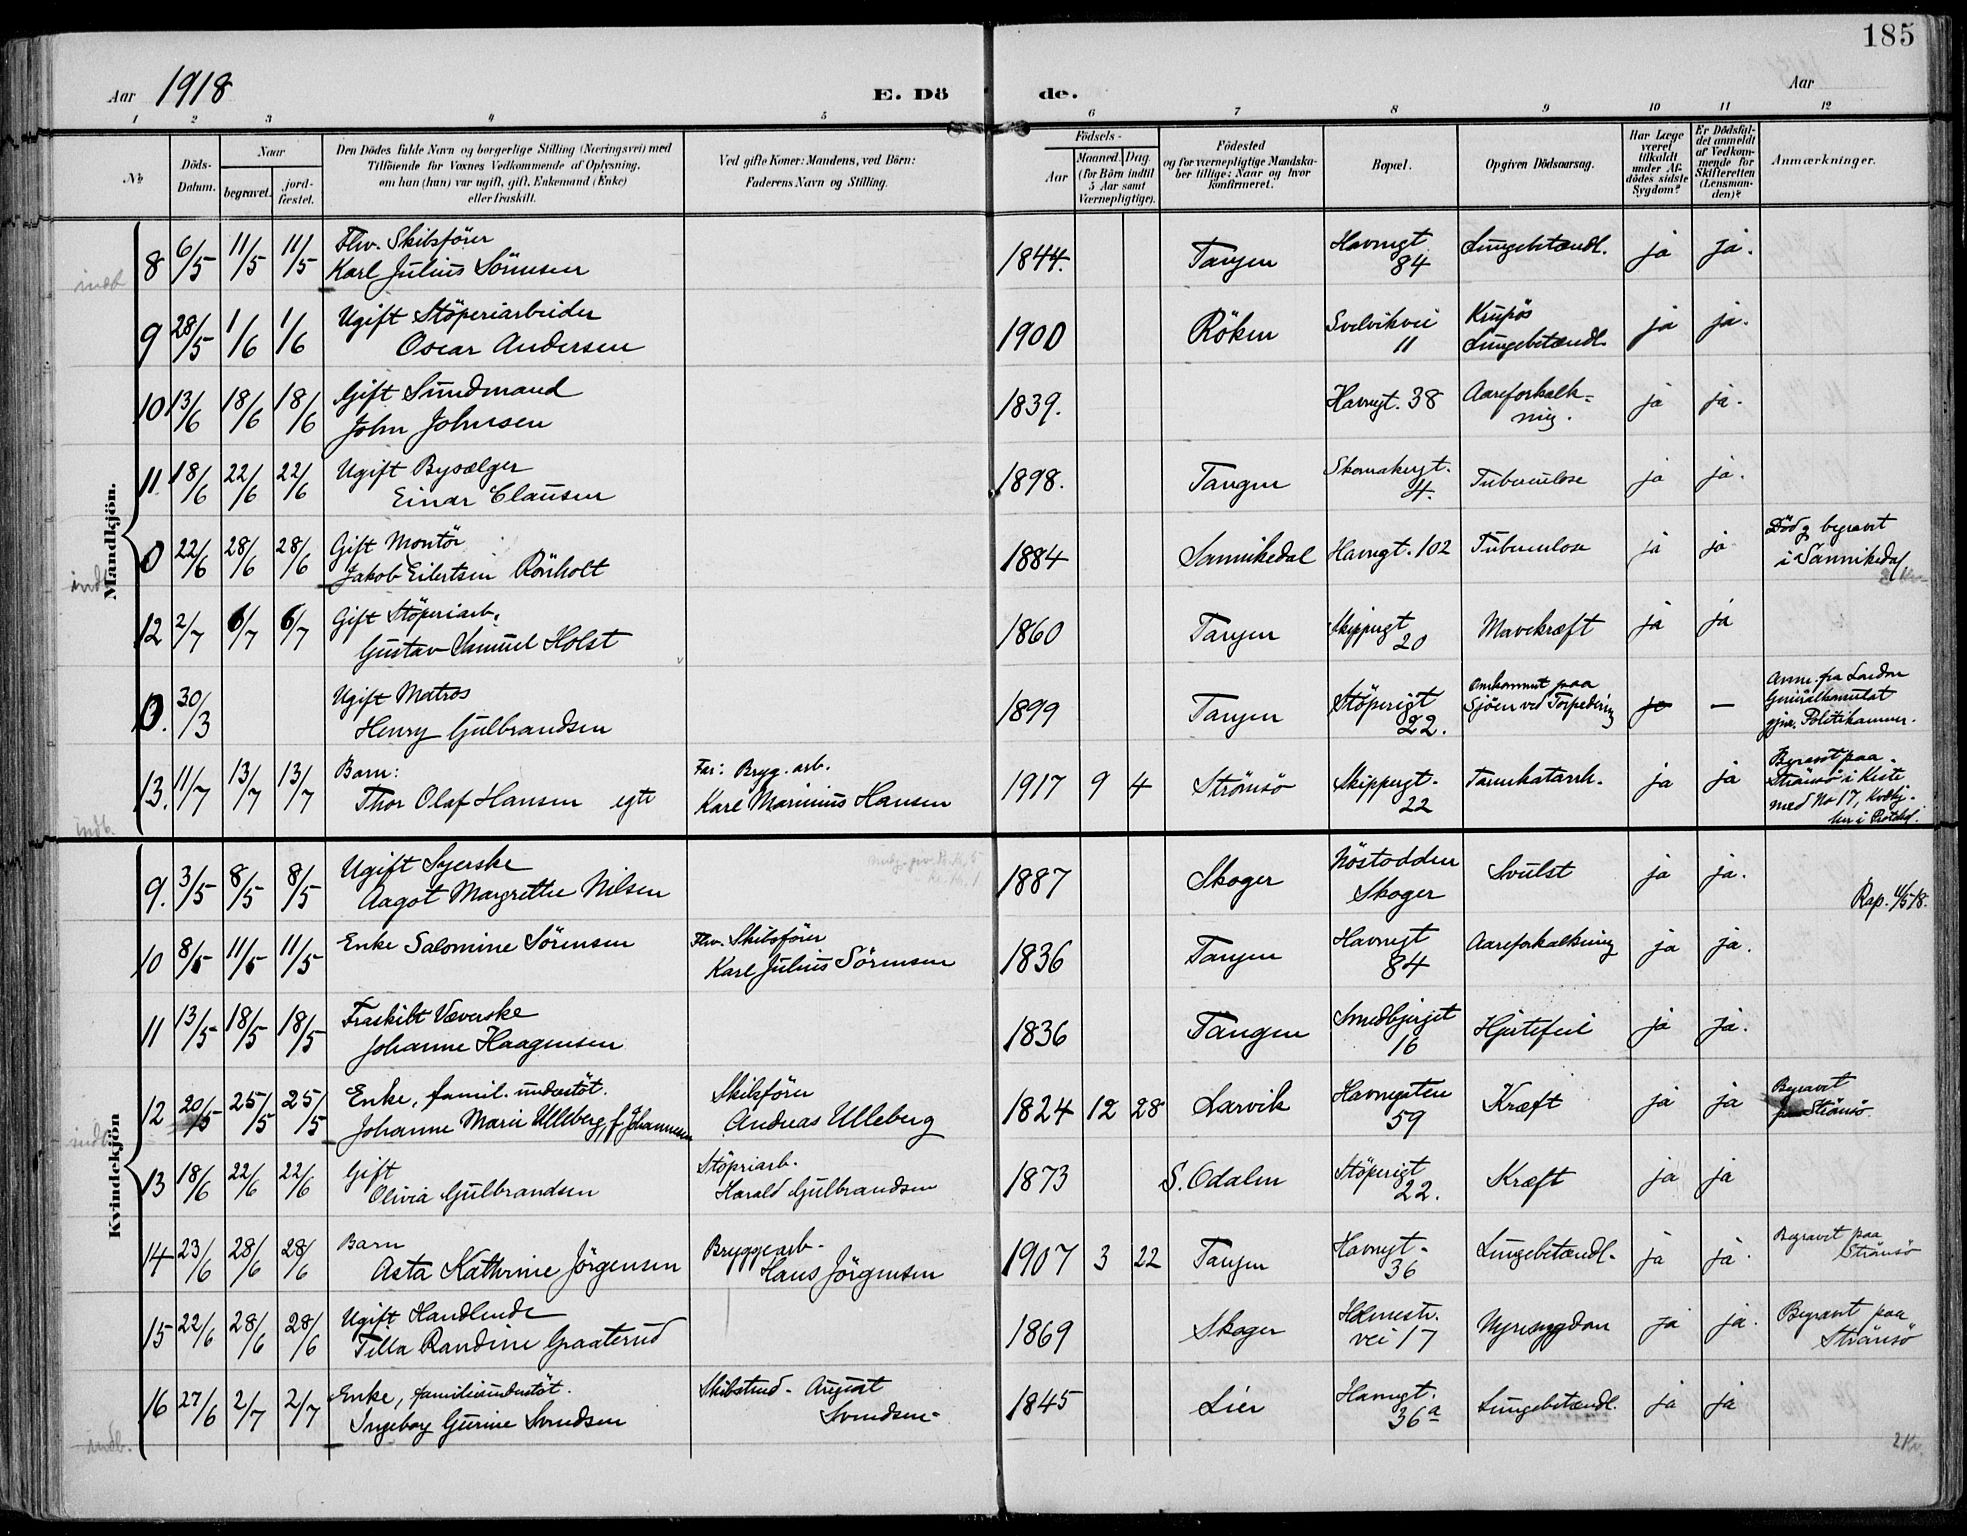 185
Aar 1918
E. Dö de.
Aar
1 2 3 4 5 6 7 8 9 10 11 12
No
Döds-Datum.
Naar
begravet.
jord-fæstet.
Den Dödes fulde Navn og borgerlige Stilling (Næringsvei) med
Tilföiende for Voxnes Vedkommende af Oplysning,
om han (hun) var ugift, gift, Enkemand (Enke)
eller fraskilt.
Ved gifte Koner: Mandens, ved Börn:
Faderens Navn og Stilling.
Födsels-
Aar
Maaned. Dag.
(for Börn indtil
5 Aar samt
Værnepligtige).
Födested
og for værnepligtige Mandska-
ber tillige: Naar og hvor
konfirmeret.
Bopæl.
Opgiven Dödsaarsag.
Har Læge
været
tilkaldt
under Af-
dödes sidste
Sygdom?
Er Dödsfal-
det anmeldt
af Vedkom-
mende for
Skifteretten
(Lensman-
den)?
Anmærkninger.
Mandkjön.
8 6/5 11/5 11/5 Fhv. Skibsförer
Karl Julius Sörensen 1844. Tangen Havnegt. 84 Lungebetændl. ja ja.
9 28/5 1/6 1/6 Ugift Stöperiarbeider
Oscar Andersen 1900 Röken Svelvikvei 11 Krupös Lungebetændl. ja ja.
10 13/6 18/6 18/6 Gift Sundmand
John Johnsen 1839. Havnegt. 38 Aareforkalk= ning. ja ja.
11 18/6 22/6 22/6 Ugift Bysælger
Einar Clausen 1898. Tangen Skomakergt. 4. Tuberculose ja ja.
0 22/6 28/6 28/6 Gift Montör
Jakob Eilertsen Rönholt 1884 Sannikedal Havnegt. 102 Tuberculose ja ja Död og begravet
i Sannikedal
12 2/7 6/7 6/7 Gift Stöperiarb.
Gustav Samuel Holst 1860 Tangen Skippergt 20 Mavekræft ja ja
0. 30/3 Ugift Matros
Henry Gulbrandsen 1899 Tangen Stöperigt 22. Omkommet paa
Sjöen ved Torpedering ja — Anm. fra London
Generalkonsulat
gjm. Politikammer.
13. 11/7 13/7 13/7 Barn:
Thor Olaf Hansen egte Far: Bryg. arb.
Karl Marinius Hansen 1917 9 4 Strömsö Skippergt. 22 Tarmkatarrh. ja ja Begravet paa
Strömsö i Kiste
med No 17, Kvdkj.
her i Protokol.
Kvindekjön
9. 3/5 8/5 8/5 Ugift Syerske
Aagot Margrethe Nilsen 1887 Skoger Nöstodden
Skoger Svulst ja ja. Rap. 4/5 18.
10 8/5 11/5 11/5 Enke Salomine Sörensen Fhv. Skibsförer
Karl Julius Sörensen 1836 Tangen Havnegt 84 Aareforkalkning ja ja.
11 13/5 18/5 18/5 Fraskilt Væverske
Johanne Haagensen 1836 Tangen Smedbjerget 16 Hjertefeil ja ja.
12 20/5 25/5 25/5 Enke, famil. understöt.
Johanne Marie Ulleberg, f. Johannesen Skibsförer
Andreas Ulleberg 1824 12 28 Larvik Havnegaten 59 Kræft ja ja Begravet
paa Strömsö
13 18/6 22/6 22/6 Gift
Olivia Gulbrandsen Stöperiarb.
Harald Gulbrandsen 1873 S. Odalen Stöperigt 22. Kræft ja ja
14 23/6 28/6 28/6 Barn
Asta Kathrine Jörgensen Bryggearb.
Hans Jörgensen 1907 3 22 Tangen Havnegt. 36 Lungebetændl. ja ja. Begravet paa
Strömsö
15 22/6 28/6 28/6 Ugift Handlende
Tilla Randine Graaterud 1869 Skoger Holmestr. vei 17 Nyresygdom ja ja. Begravet paa
Strömsö
16 27/6 2/7 2/7 Enke, familieunderstöt.
Ingeborg Gurine Svendsen Skibstmd. August
Svendsen 1845 Lier Havnegt. 36a Lungebetændl. ja ja
indb.